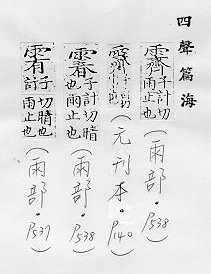 四聲篇海
霽 子計切晴也雨止也（雨部。P538）
（元刊本。P140）
子計切晴也雨止也（雨部。P538）
子計切晴也雨止也（雨部。P537）